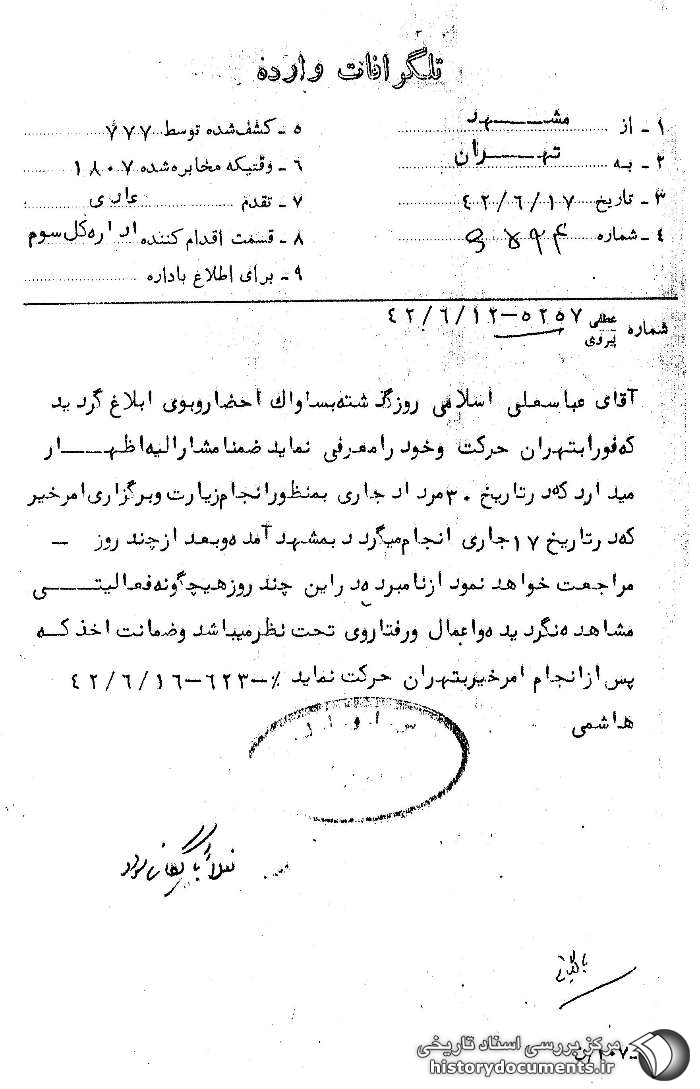 تلگرافات وارده
۱ - از مشهد
۲ - به تهران
۳ - تاریخ ۴۲/۶/۱۷
۴ - شماره
۵ - کشف شده توسط ۷۷۷
۶ - وقتیکه مخابره شده ۱۸۰۷
۷ - تقدم عادی
۸ - قسمت اقدام کننده اداره کل سوم
۹ - برای اطلاع باداره
شماره عطفی پیروی ۵۲۵۷-۴۲/۶/۱۲
آقای عباسعلی اسلامی روزگذشته بساواك احضار وبوی ابلاغ گردید
که فورا بتهران حرکت وخود رامعرفی نماید ضمنا مشارالیه اظهــار
میدارد که در تاریخ ۳۰ مرداد جاری بمنظور انجام زیارت وبرگزاری امرخیر
که در تاریخ ۱۷ جاری انجام میگردد بمشهد آمده وبعد ازچند روز –
مراجعت خواهد نمود ازنامبرده در این چند روز هیچگونه فعالیتــی
مشاهده نگردیده واعمال ورفتاروی تحت نظرمیباشد وضمانت اخذ کــه
پس از انجام امرخیر بتهران حرکت نماید ٪ -۶۲۳-۴۲/۶/۱۶
هاشمی
ساواك
مرکز بررسی اسناد تاریخی
historydocuments.ir